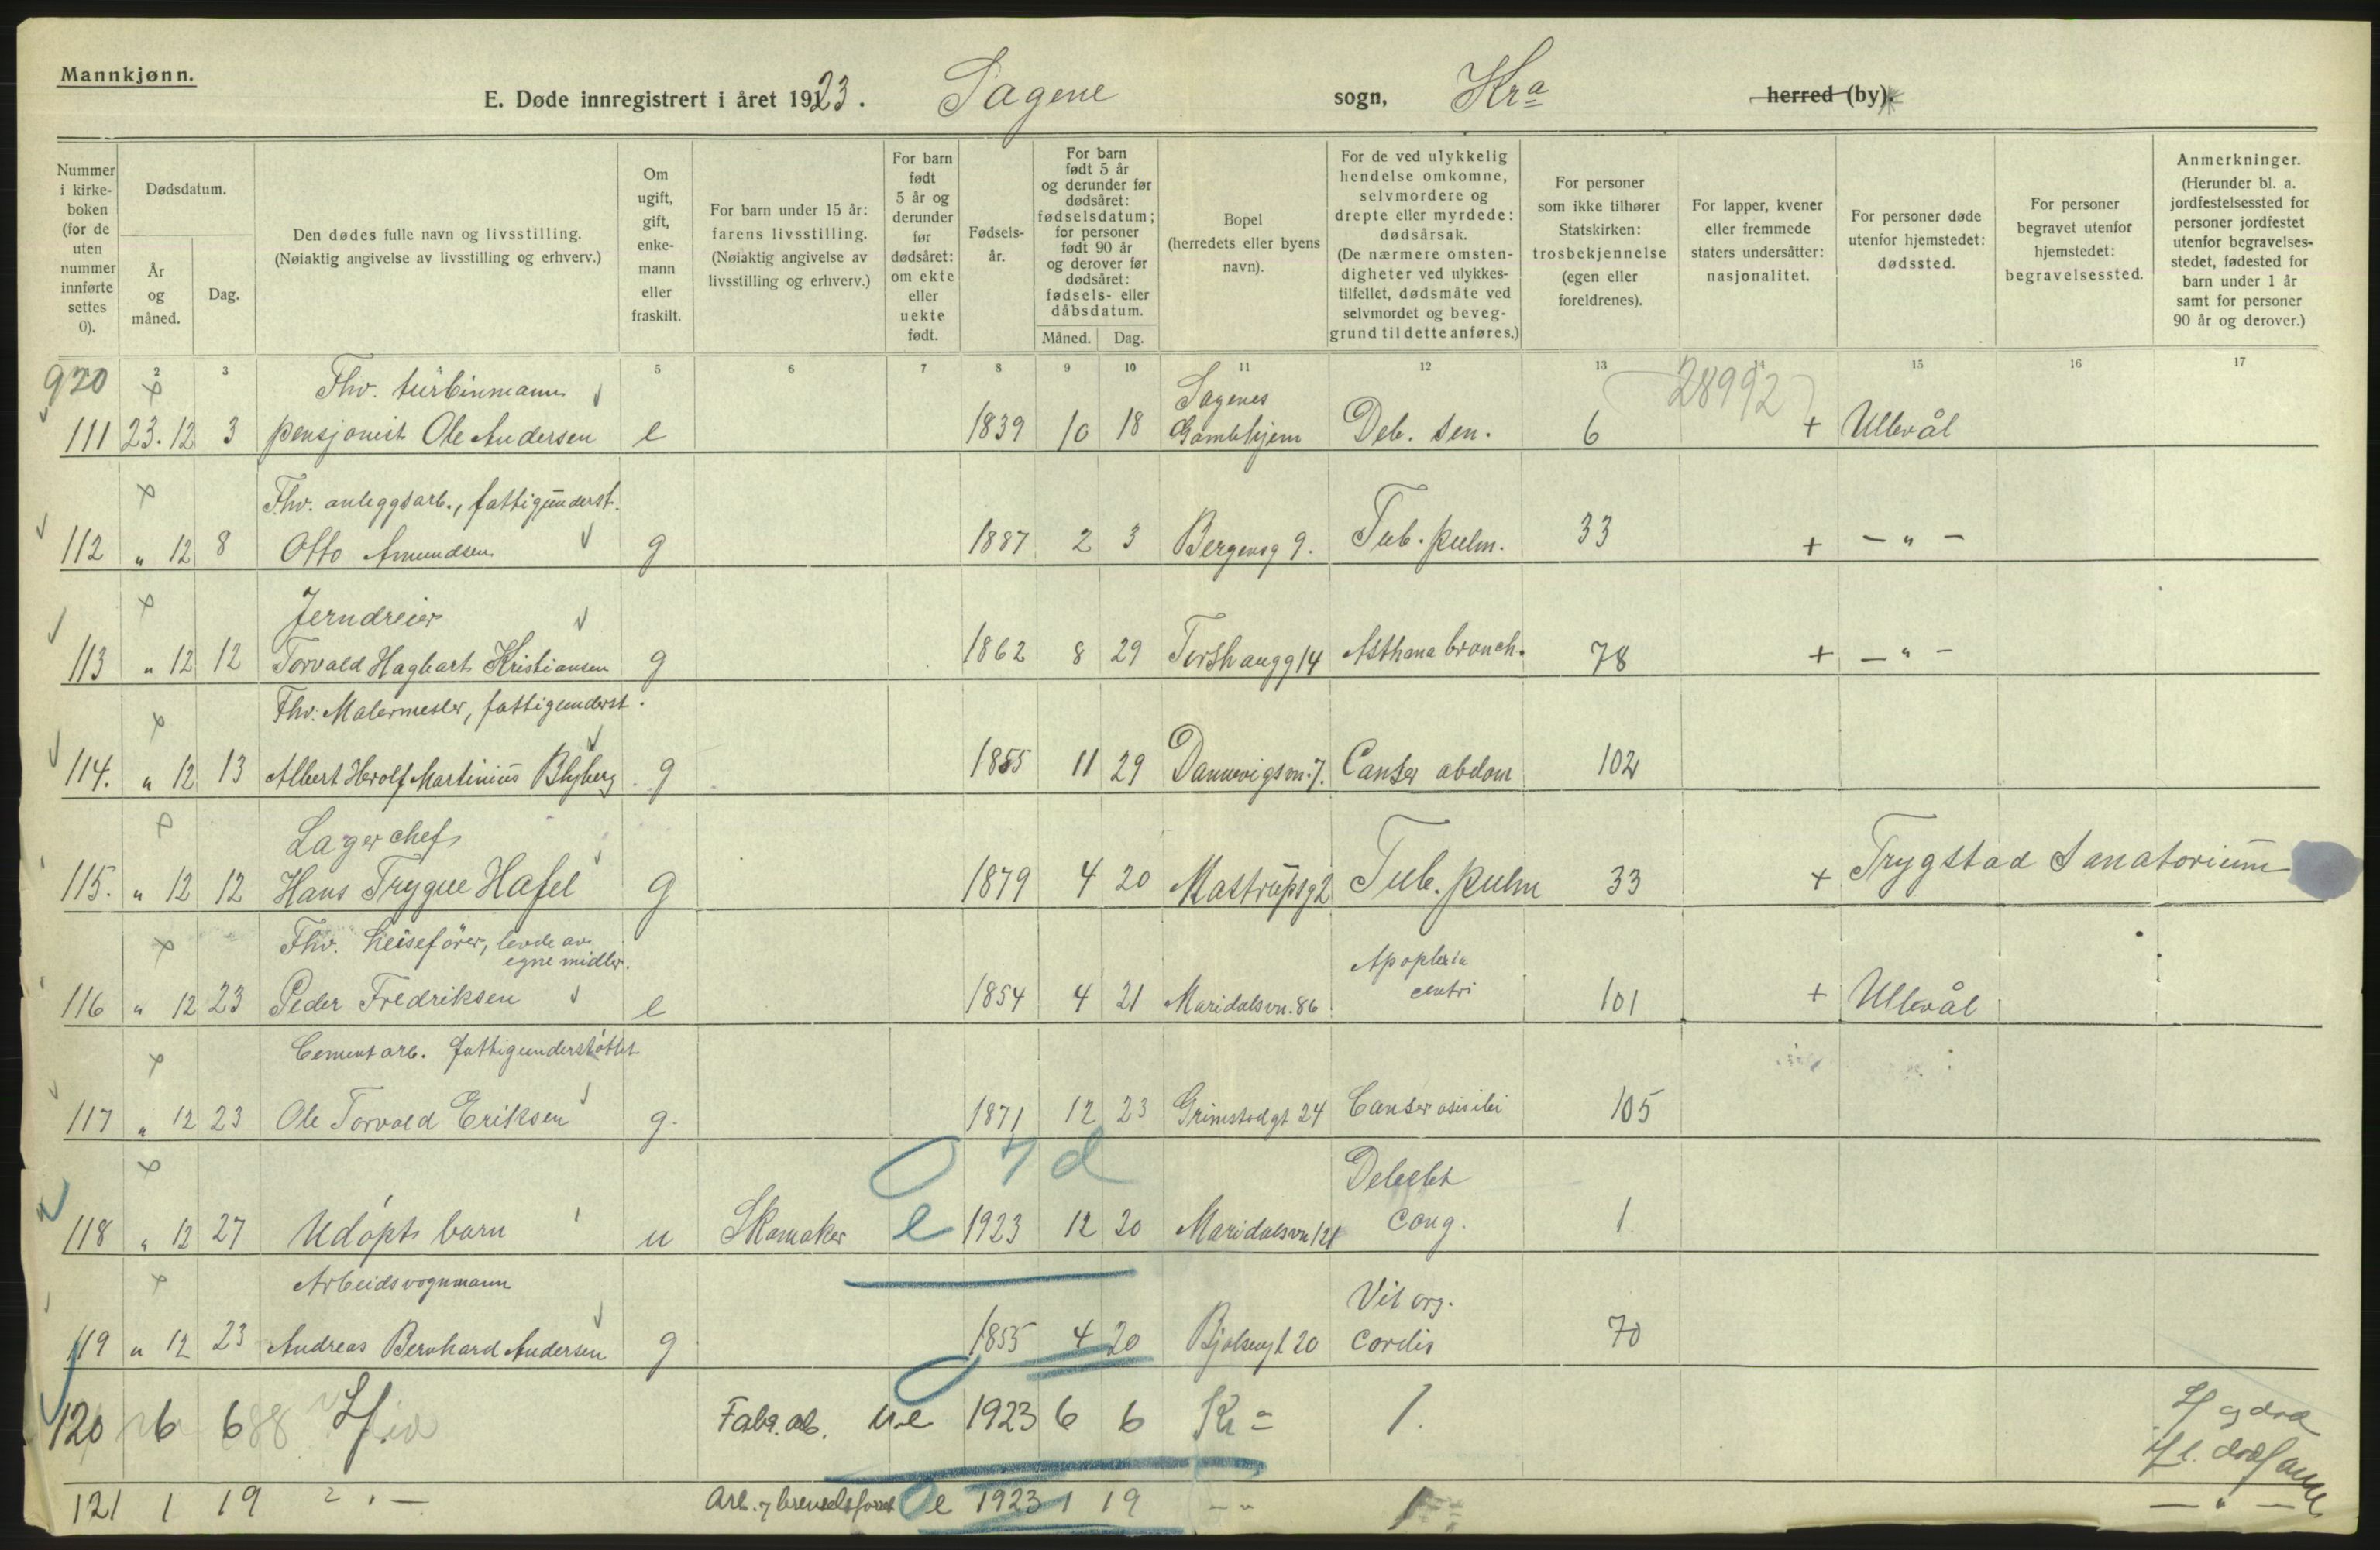 Mannkjønn.
E. Døde innregistrert i året 1923. Sagene sogn, Kra herred (by).
Nummer i kirke-boken (for de uten nummer innførte settes 0).
Dødsdatum.
År og måned.
Dag.
Den dødes fulle navn og livsstilling.
(Nøiaktig angivelse av livsstilling og erhverv.)
Om ugift, gift, enke-mann eller fraskilt.
For barn under 15 år: farens livsstilling.
(Nøiaktig angivelse av livsstilling og erhverv.)
For barn født 5 år og derunder før dødsåret: om ekte eller uekte født.
Fødsels-år.
For barn født 5 år og derunder før dødsåret: fødselsdatum; for personer født 90 år og derover før dødsåret: fødsels- eller dåbsdatum.
Måned. Dag.
Bopel (herredets eller byens navn).
For de ved ulykkelig hendelse omkomne, selvmordere og drepte eller myrdede: dødsårsak.
(De nærmere omsten-digheter ved ulykkes-tilfellet, dødsmåte ved selvmordet og beveg-grund til dette anføres.)
For personer som ikke tilhører Statskirken: trosbekjennelse (egen eller foreldrenes).
For lapper, kvener eller fremmede staters undersåtter: nasjonalitet.
For personer døde utenfor hjemstedet: dødssted.
For personer begravet utenfor hjemstedet: begravelsessted.
Anmerkninger.
(Herunder bl. a. jordfestelsessted for personer jordfestet utenfor begravelses-stedet, fødested for barn under 1 år samt for personer 90 år og derover.)
2 3 5 6 7 8 9 10 11 12 13 14 15 16 17
920 Thv. turbinmann Sagenes 28992
111 23.12 3 pensjonist Ole Andersen e 1839 10 18 Gamlehjem Deb. sen. 6 + Ullevål
Fhv. anleggsarb., fattigunderst.
112 " 12 8 Otto Amundsen g 1887 2 3 Bergensg 9. Tub. pulm. 33 + — " —
Jerndreier
113 " 12 12 Torvald Hagbart Kristiansen g 1862 8 29 Torshaugg 14 Asthma bronch. 78 + — " —
Fhv. Malermester, fattigunderst.
114. " 12 13 Albert Herolf Martinius Blyberg g 1855 11 29 Dannevigsvn. 7. Canser abdom 102
Lagerchef
115. " 12 12 Hans Trygve Hafel g 1879 4 20 Mastrupsg 2 Tub. pulm 33 + Trygstad Sanatorium
Fhv. heisefører, levde av
egne midler. Apoplexia
116 " 12 23 Peder Fredriksen e 1854 4 21 Maridalsvn. 86 centri 101 + Ullevål
Cementarb. fattigunderstøttet
117 " 12 23 Ole Torvald Eriksen g. 1871 12 23 Grimstadgt 24 Canser 105
7 d Debilit
118 " 12 27 Udøpt barn u Skomaker e 1923 12 20 Maridalsvn 121 cong. 1
Arbeidsvognmann Vit org.
119 " 12 23 Andreas Bernhard Andersen g 1855 4 20 Bjølsengt 20 cordis 70
120 6 6 Fabr. arb. u.e 1923 6 6 Kra 1.
121 1 19 " — Arb. e 1923 1 19 — " 1 — " —